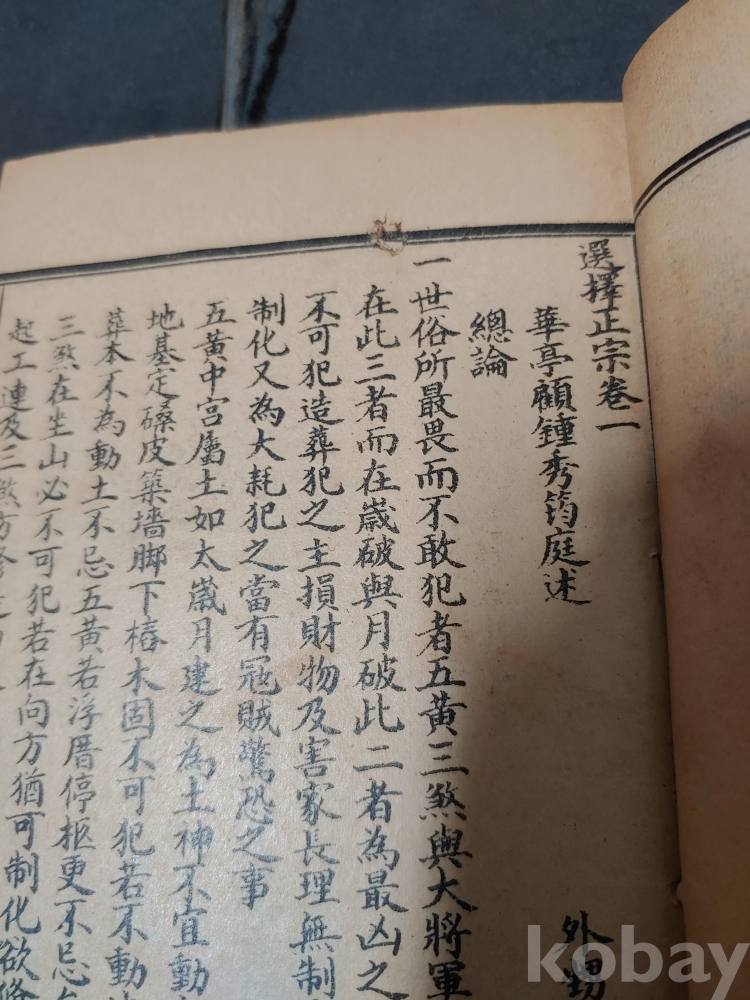 選擇正宗卷一
華亭顧鍾秀筠庭述
外甥
總論
一世俗所最畏而不敢犯者五黃三煞與大將軍
在此三者而在歲破與月破此二者為最凶之
不可犯造葬犯之主損財物及害家長理無制
制化又為大耗犯之當有冦賊驚恐之事
五黃中宮屬土如太歲月建之為土神不宜動
地基定磉皮築墻脚下樁木固不可犯若不動
葬本不為動土不忌五黃若浮厝停柩更不忌
三煞在坐山必不可犯若在向方猶可制化欲修
起工連及三煞方
kobay